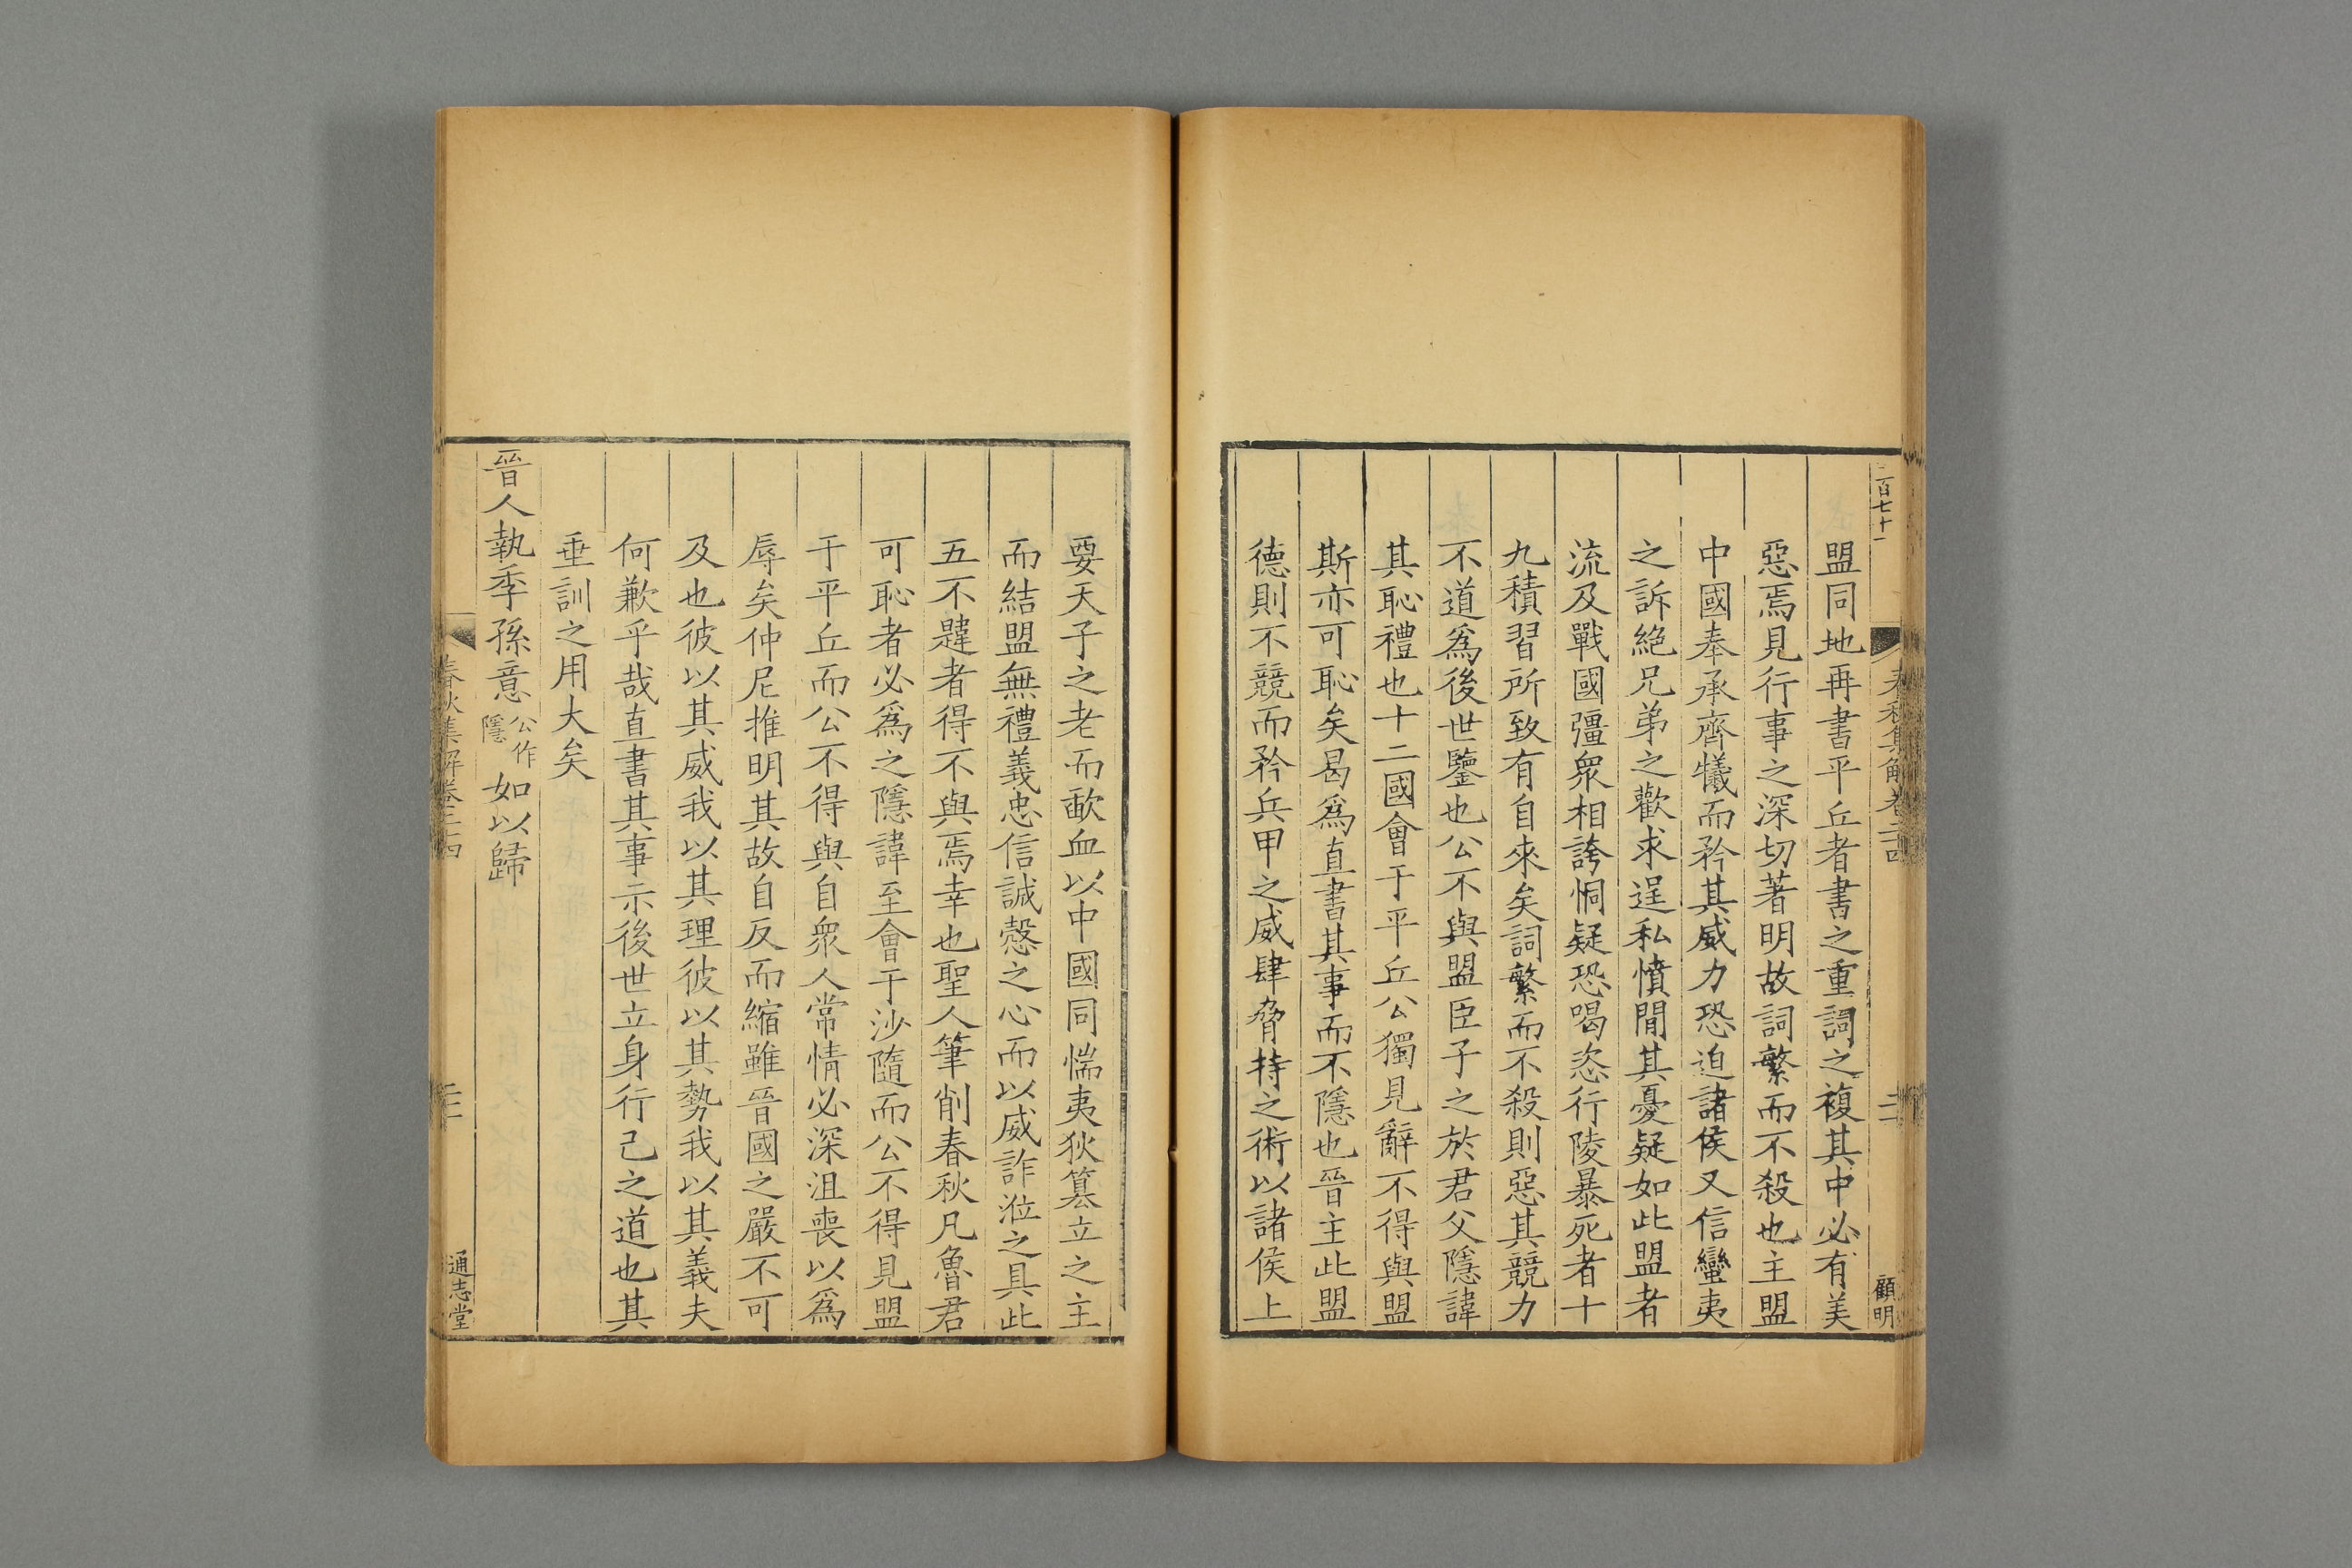 二百七十一
春秋集解卷二十四
二十一
顧明
盟同地再書平丘者書之重詞之複其中必有美
惡焉見行事之深切著明故詞繁而不殺也主盟
中國奉承齊犧而矜其威力恐迫諸侯又信蠻夷
之訴絶兄弟之歡求逞私憤閒其憂疑如此盟者
流及戰國彊衆相誇恫疑恐喝恣行陵暴死者十
九積習所致有自來矣詞繁而不殺則惡其競力
不道爲後世鑒也公不與盟臣子之於君父隱諱
其恥禮也十二國會于平丘公獨見辭不得與盟
斯亦可恥矣曷爲直書其事而不隱也晉主此盟
德則不競而矜兵甲之威肆脅持之術以諸侯上
要天子之老而歃血以中國同惴夷狄篡立之主
而結盟無禮義忠信誠慤之心而以威詐涖之具此
五不韙者得不與焉幸也聖人筆削春秋凡魯君
可恥者必爲之隱諱至會于沙隨而公不得見盟
于平丘而公不得與自衆人常情必深沮喪以爲
辱矣仲尼推明其故自反而縮雖晉國之嚴不可
及也彼以其威我以其理彼以其勢我以其義夫
何歉乎哉直書其事示後世立身行己之道也其
垂訓之用大矣
晉人執季孫意公作隱如以歸
春秋集解卷二十四
通志堂